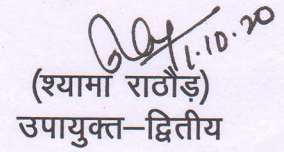 1.10.20
(श्यामा राठौड़)
उपायुक्त–द्वितीय